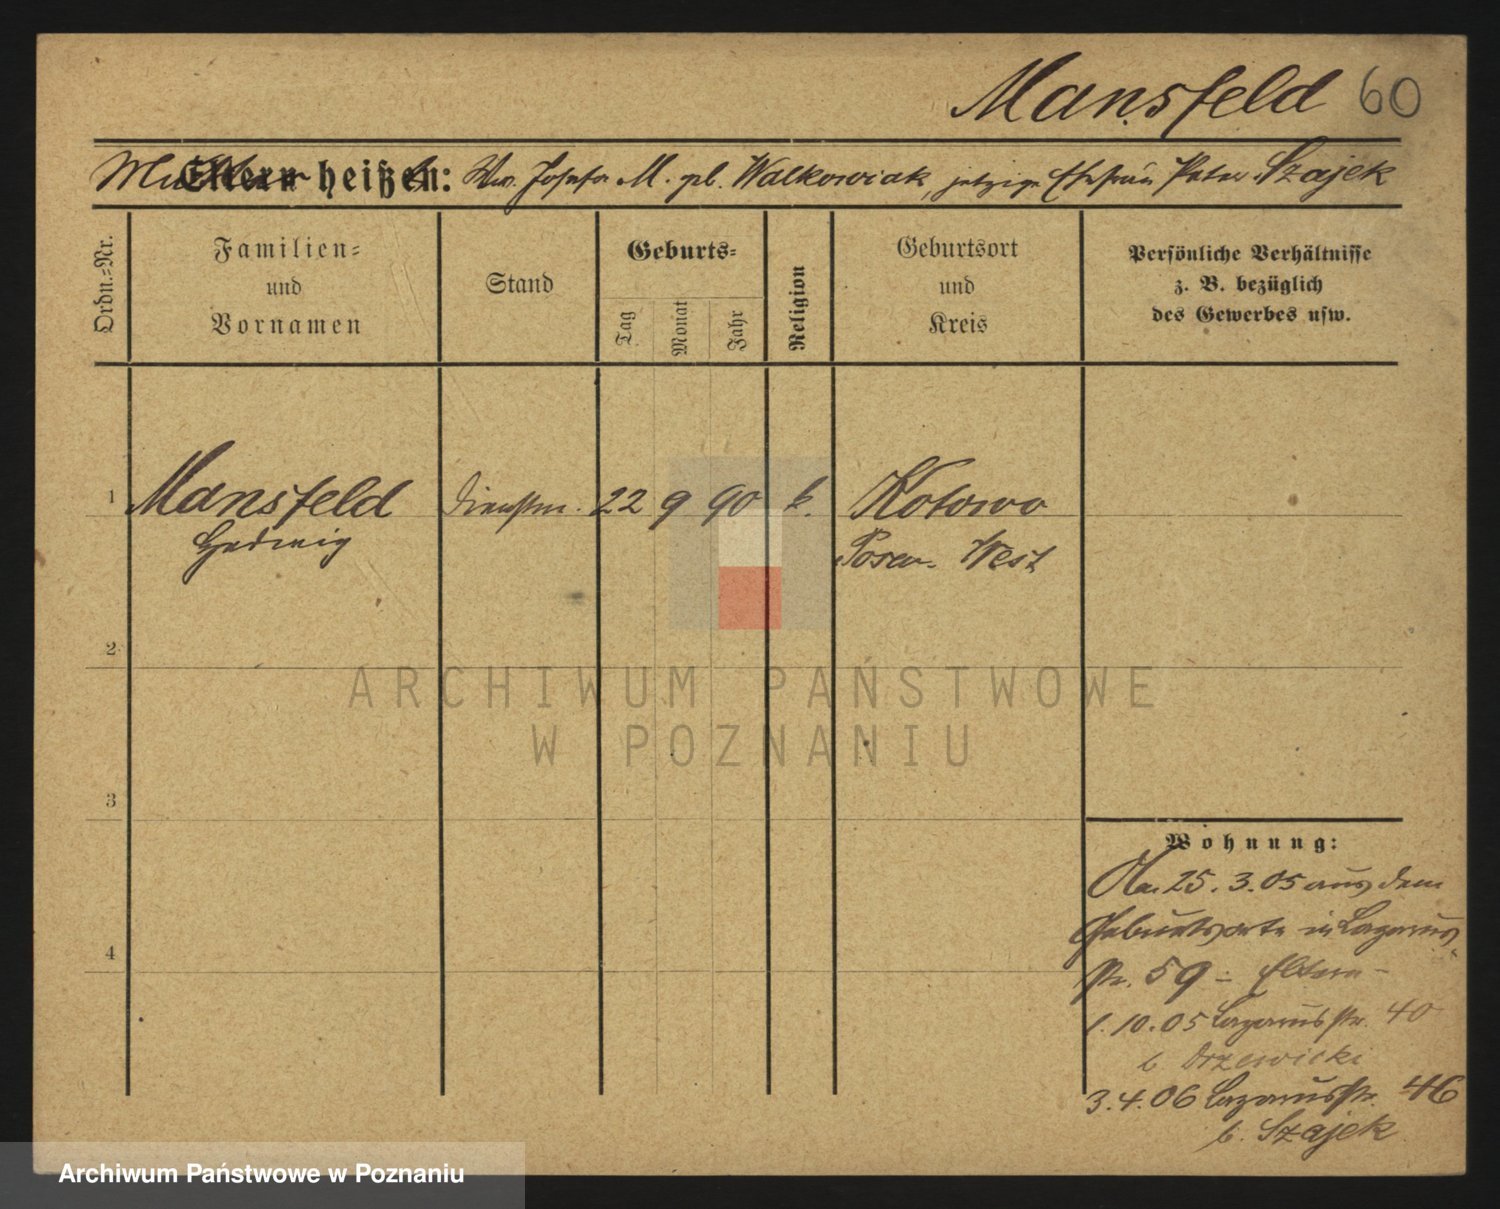 Mansfeld 60
Mutter heißt: Ww. Josefa M. gb. Walkowiak, jetzige Ehefrau Peter Szajek
Ordn.=Nr.
Familien=
und
Vornamen
Stand
Geburts=
Tag
Monat
Jahr
Religion
Geburtsort
und
Kreis
Persönliche Verhältnisse
z. B. bezüglich
des Gewerbes usw.
1 Mansfeld Dienstm. 22 9 90 k. Kotowo
Hedwig Posen. West
2
ARCHIWUM PAŃSTWOWE
W POZNANIU
3
Wohnung:
Am 25. 3. 05 aus dem
Geburtsorte in Lazarus
str. 59 - Eltern -
1. 10. 05 Lazarusstr. 40
b Drzewicki
3. 4. 06 Lazarusstr. 46
b. Szajek
4
Archiwum Państwowe w Poznaniu